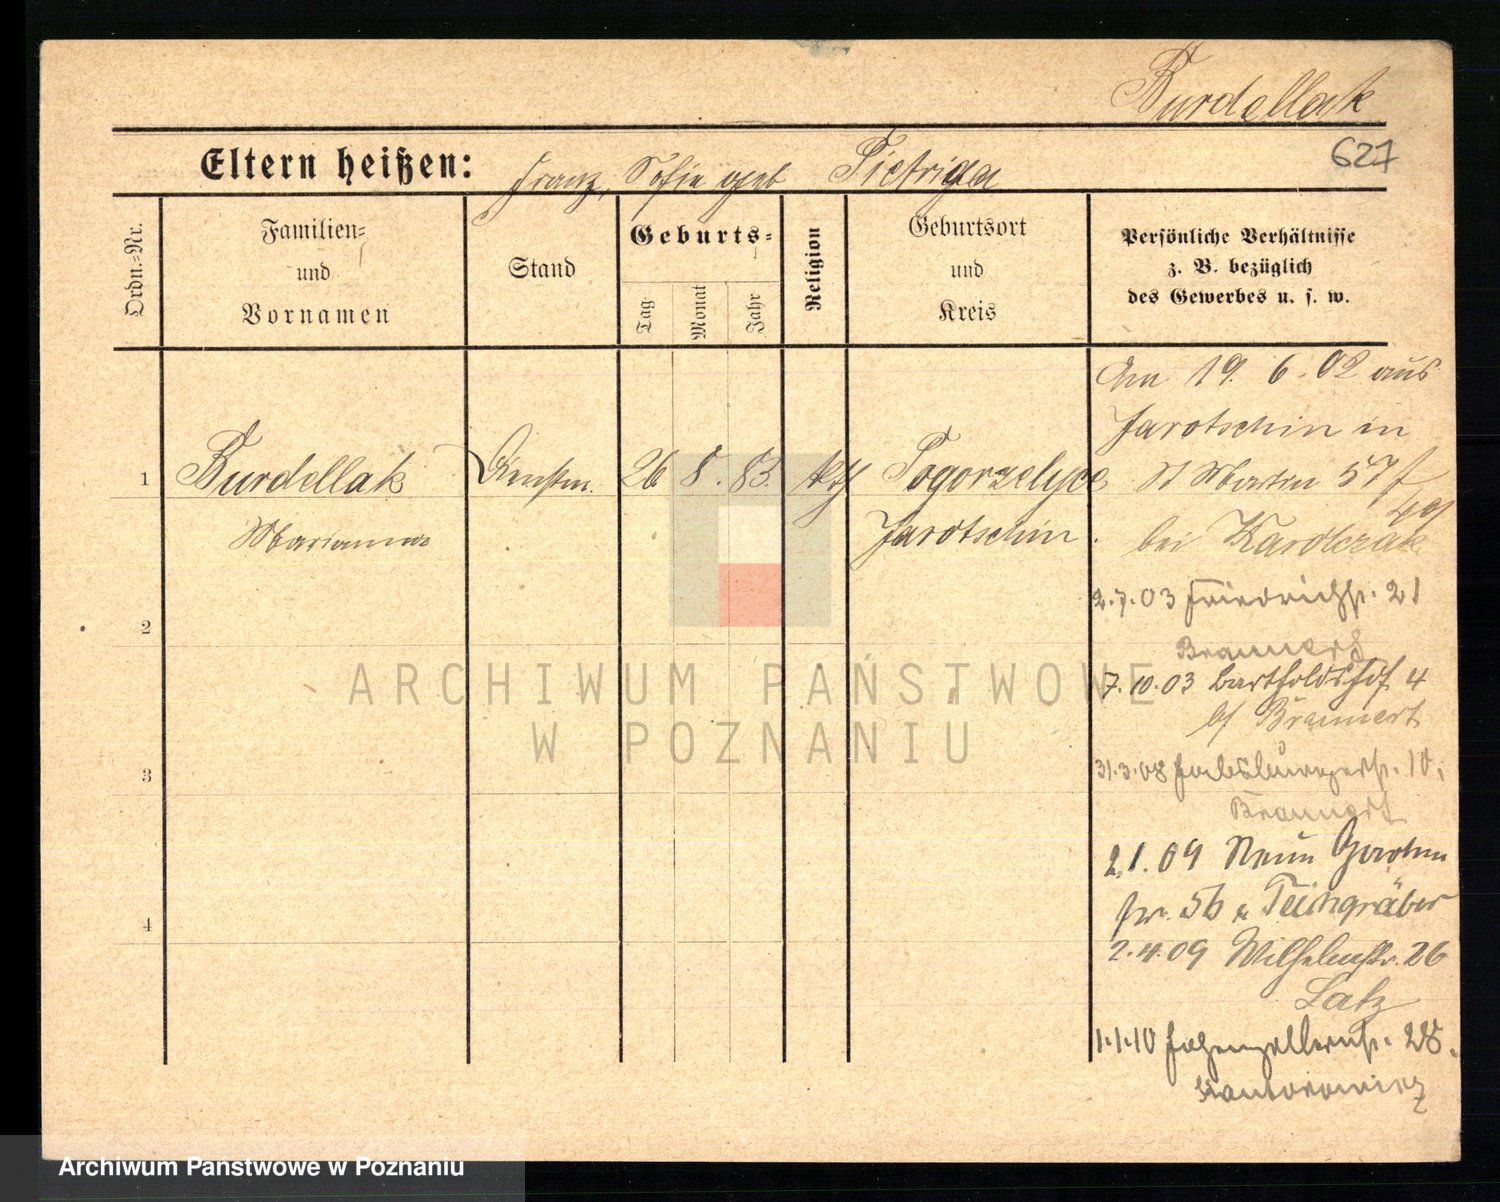 Burdellak
627
Eltern heißen: Franz, Sofie geb Pietriga
Ordn.-Nr.
Familien-
und
Vornamen
Stand
Geburts-
Tag
Monat
Jahr
Religion
Geburtsort
und
Kreis
Persönliche Verhältnisse
z. B. bezüglich
des Gewerbes u. s. w.
1
Burdellak
Marianna
Dienstm.
26 8. 83.
kth
Pogorzelyce
Jarotschin.
Am 19. 6. 02 aus
Jarotschin in
St Martin 57
bei Karolczak
2.7.03 Friedrichstr. 21
Brannert
7.10.03 Bartholdshof 4
bf Brannert
31.3.08 Habsburgerstr. 10.
Brannert
2.1.09 Neue Garten
str. 56 Teichgräber
2.4.09 Wilhelmstr. 26
Latz
1.1.10 Hohenzollernstr. 28.
Kantorowicz
2
3
4
ARCHIWUM PAŃSTWOWE
W POZNANIU
Archiwum Państwowe w Poznaniu